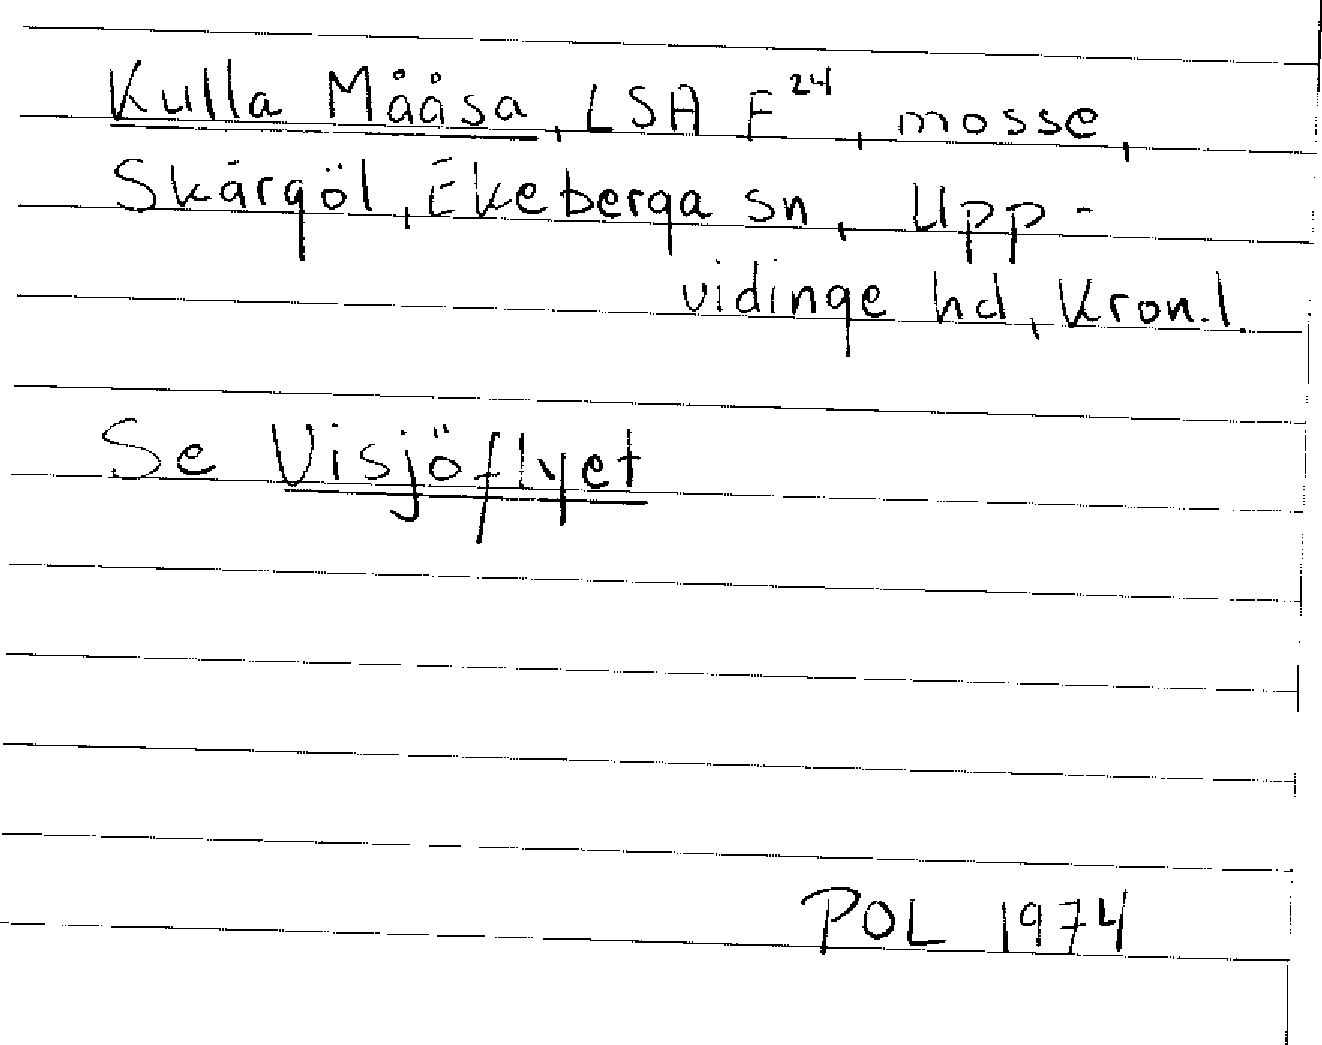 Kulla Mååsa, LSA F²⁴, mosse,
Skärgöl, Ekeberga sn, Upp-
vidinge hd, Kron.l.
Se Visjöflyet
POL 1974